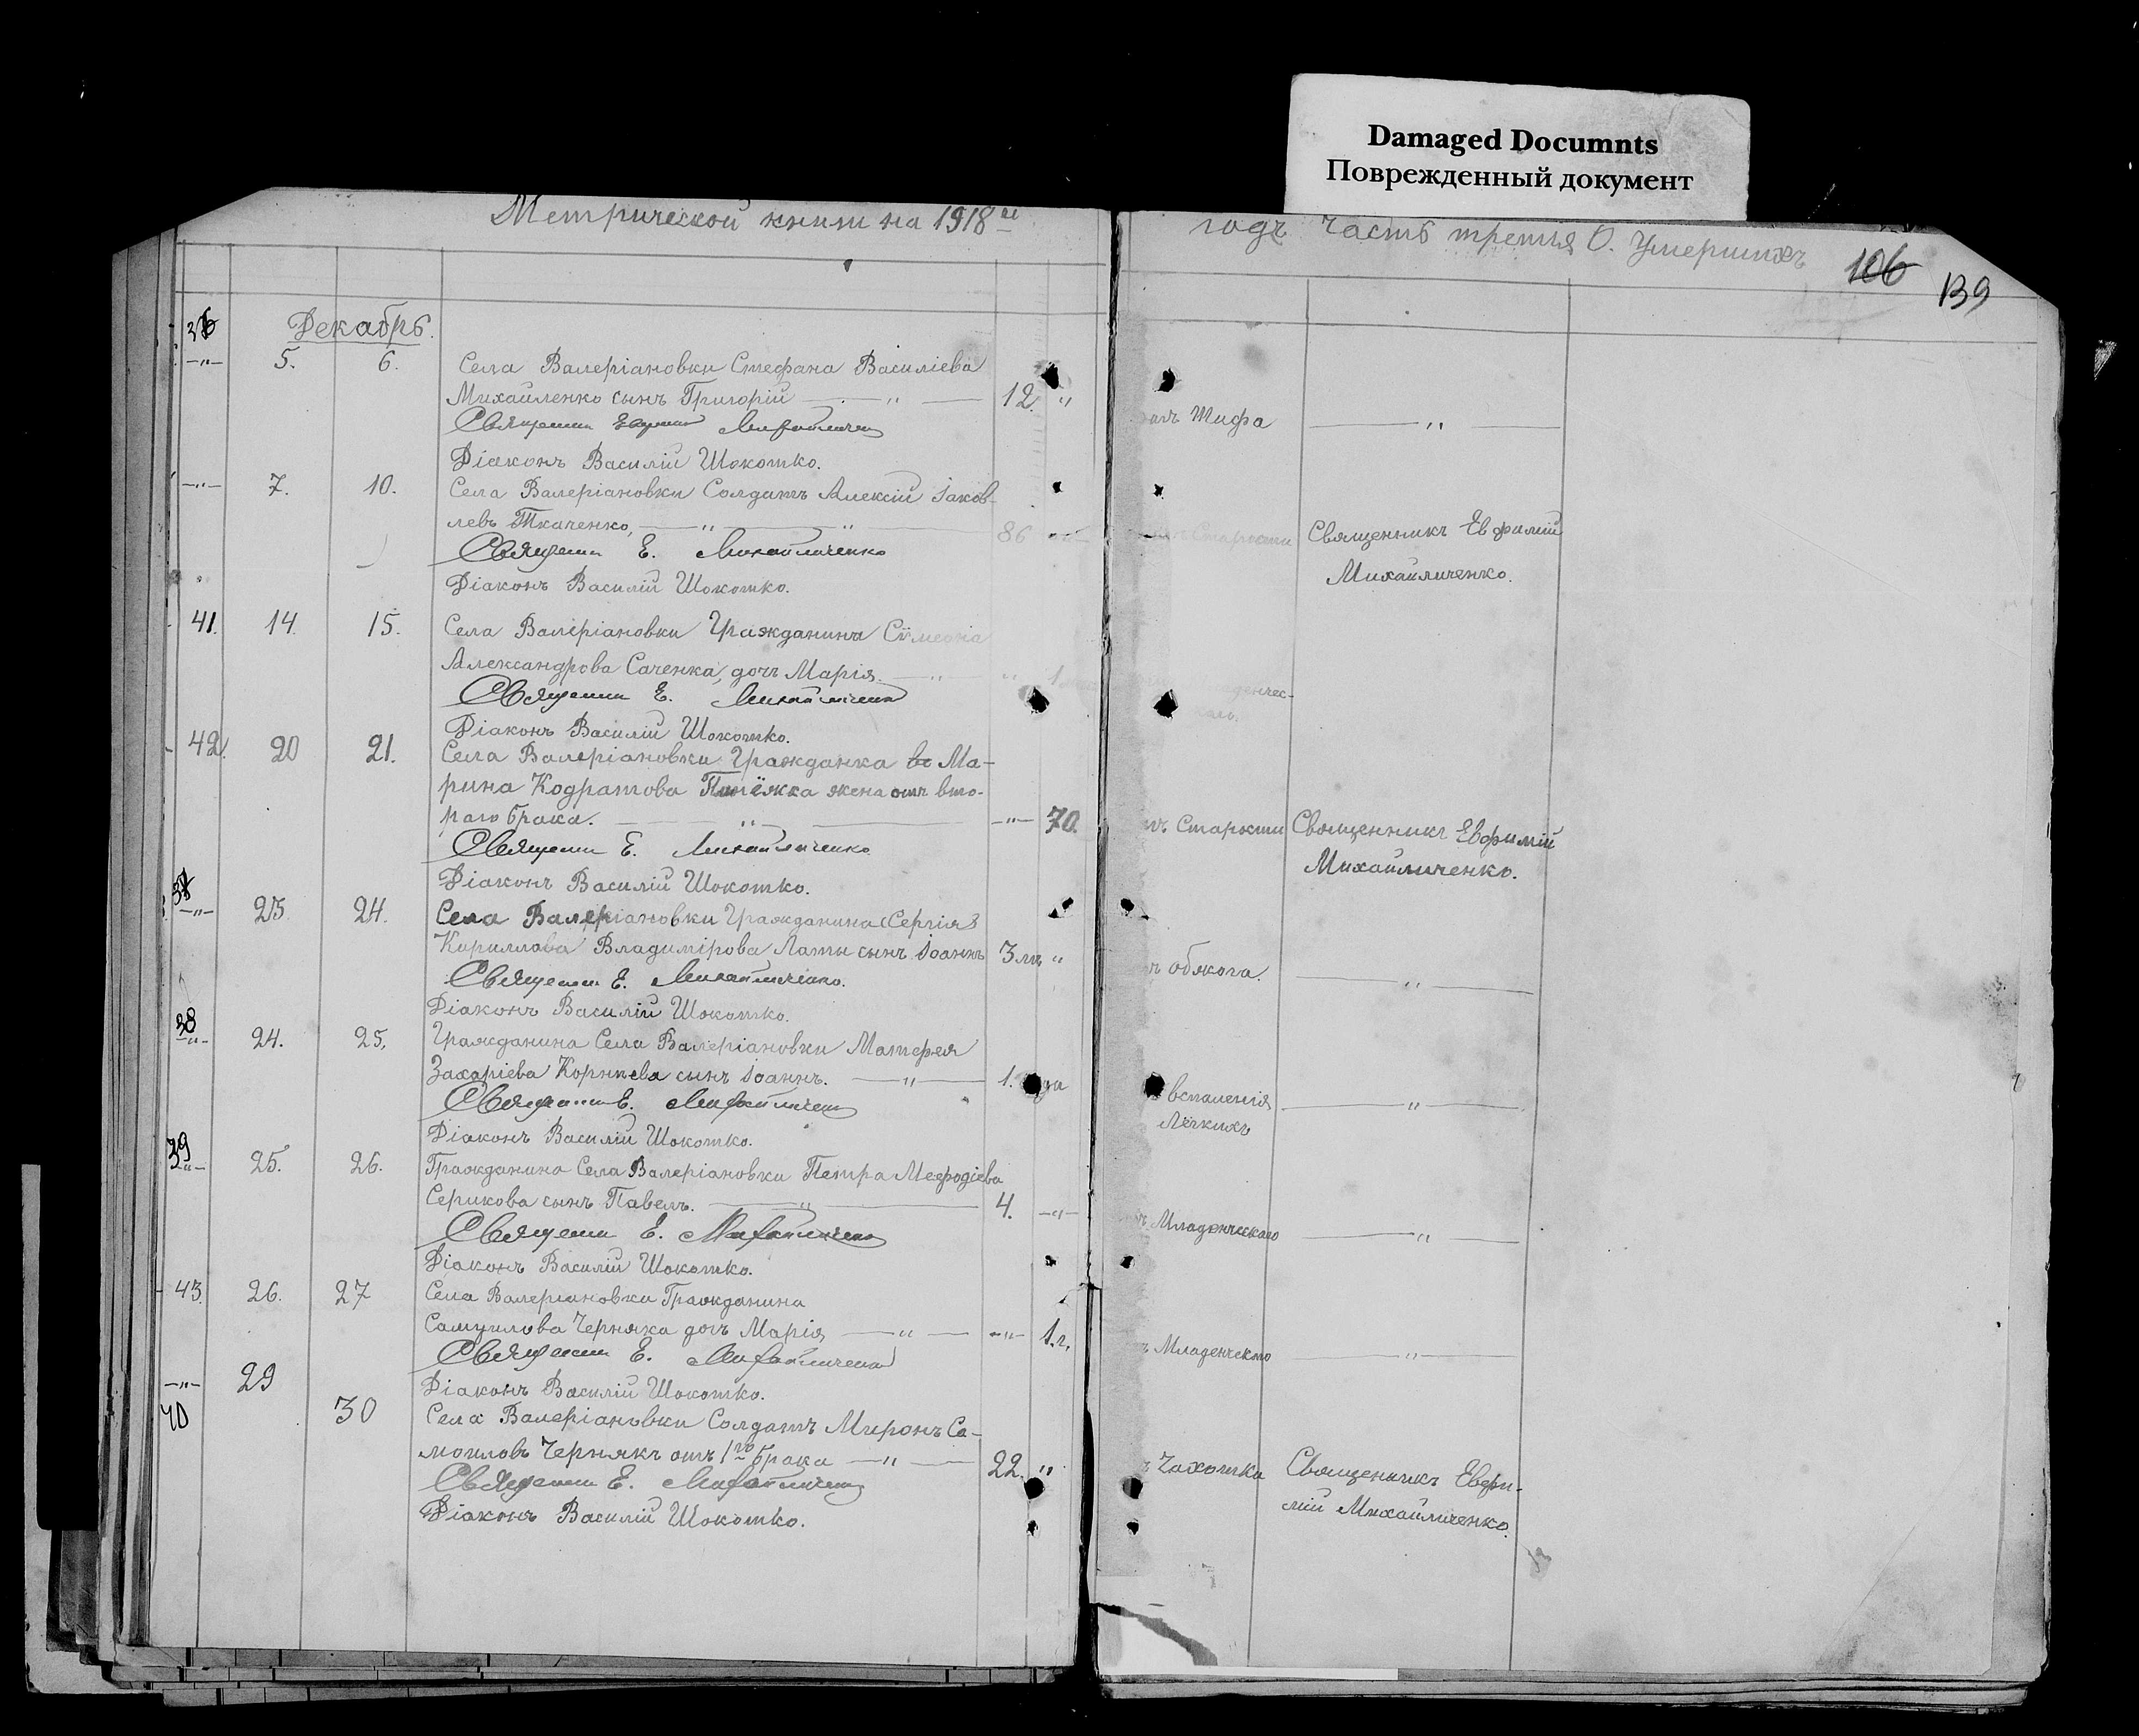 Damaged Documnts
Поврежденный документ
Метрической книги на 1918 ый
годъ Часть третья О. Умершихъ
106
139
36
Декабрь.
—„— 5. 6. Села Валеріановки Стефана Василіева
Михайленко сынъ Григорій — „ — 12. „
Тифа — „ —
Священник Евфимій Михайличенко
Діаконъ Василій Шокотко.
—„— 7. 10. Села Валеріановки Солдатъ Алексій Іаков-
левъ Ткаченко, — „ — „ 86 —„—
Старости Священникъ Евфимій
Михайличенко.
Священ Е. Михайличенко
Діаконъ Василій Шокотко.
41. 14. 15. Села Валеріановки Гражданина Сімеона
Александрова Саченка, дочь Марія. — „ — „ 1
денчес-
Священ Е. Михайличенко
Діаконъ Василій Шокотко.
42. 20 21. Села Валеріановки Гражданка во Ма-
рина Кодратова жена отъ вто-
раго брака. — „ — —„— 70.
Старости Священникъ Евфимій
Михайличенко.
Священ Е. Михайличенко
Діаконъ Василій Шокотко.
37
—„— 23 24. Села Валеріановки Гражданина (Сергія)
Кириллова Владимірова Латы сынъ Іоаннъ 3 „
обжога. — „ —
Священ Е. Михайличенко.
Діаконъ Василій Шокотко.
38
—„— 24. 25. Гражданина Села Валеріановки Матфея
Захаріева Корнкева сынъ Іоаннъ. — „ — 1.
вспаленія — „ —
Лёгкихъ
Священ Е. Михайличенко
Діаконъ Василій Шокотко.
39
—„— 25. 26. Гражданина Села Валеріановки Петра Мефодіева
Серикова сынъ Павелъ. — „ — 4. —„—
Младенческаго — „ —
Священ Е. Михайличенко
Діаконъ Василій Шокотко.
43. 26. 27 Села Валеріановки Гражданина
Самуилова Черняка дочь Марія — „ — —„— 1.г.
Младенческаго — „ —
Священ Е. Михайличенко
Діаконъ Василій Шокотко.
—„— 29
40 30 Села Валеріановки Солдатъ Миронъ Са-
моиловъ Чернякъ отъ 1го брака — „ — 22. „
Чахотка Священникъ Евфи-
мій Михайличенко.
Священ Е. Михайличенко
Діаконъ Василій Шокотко.